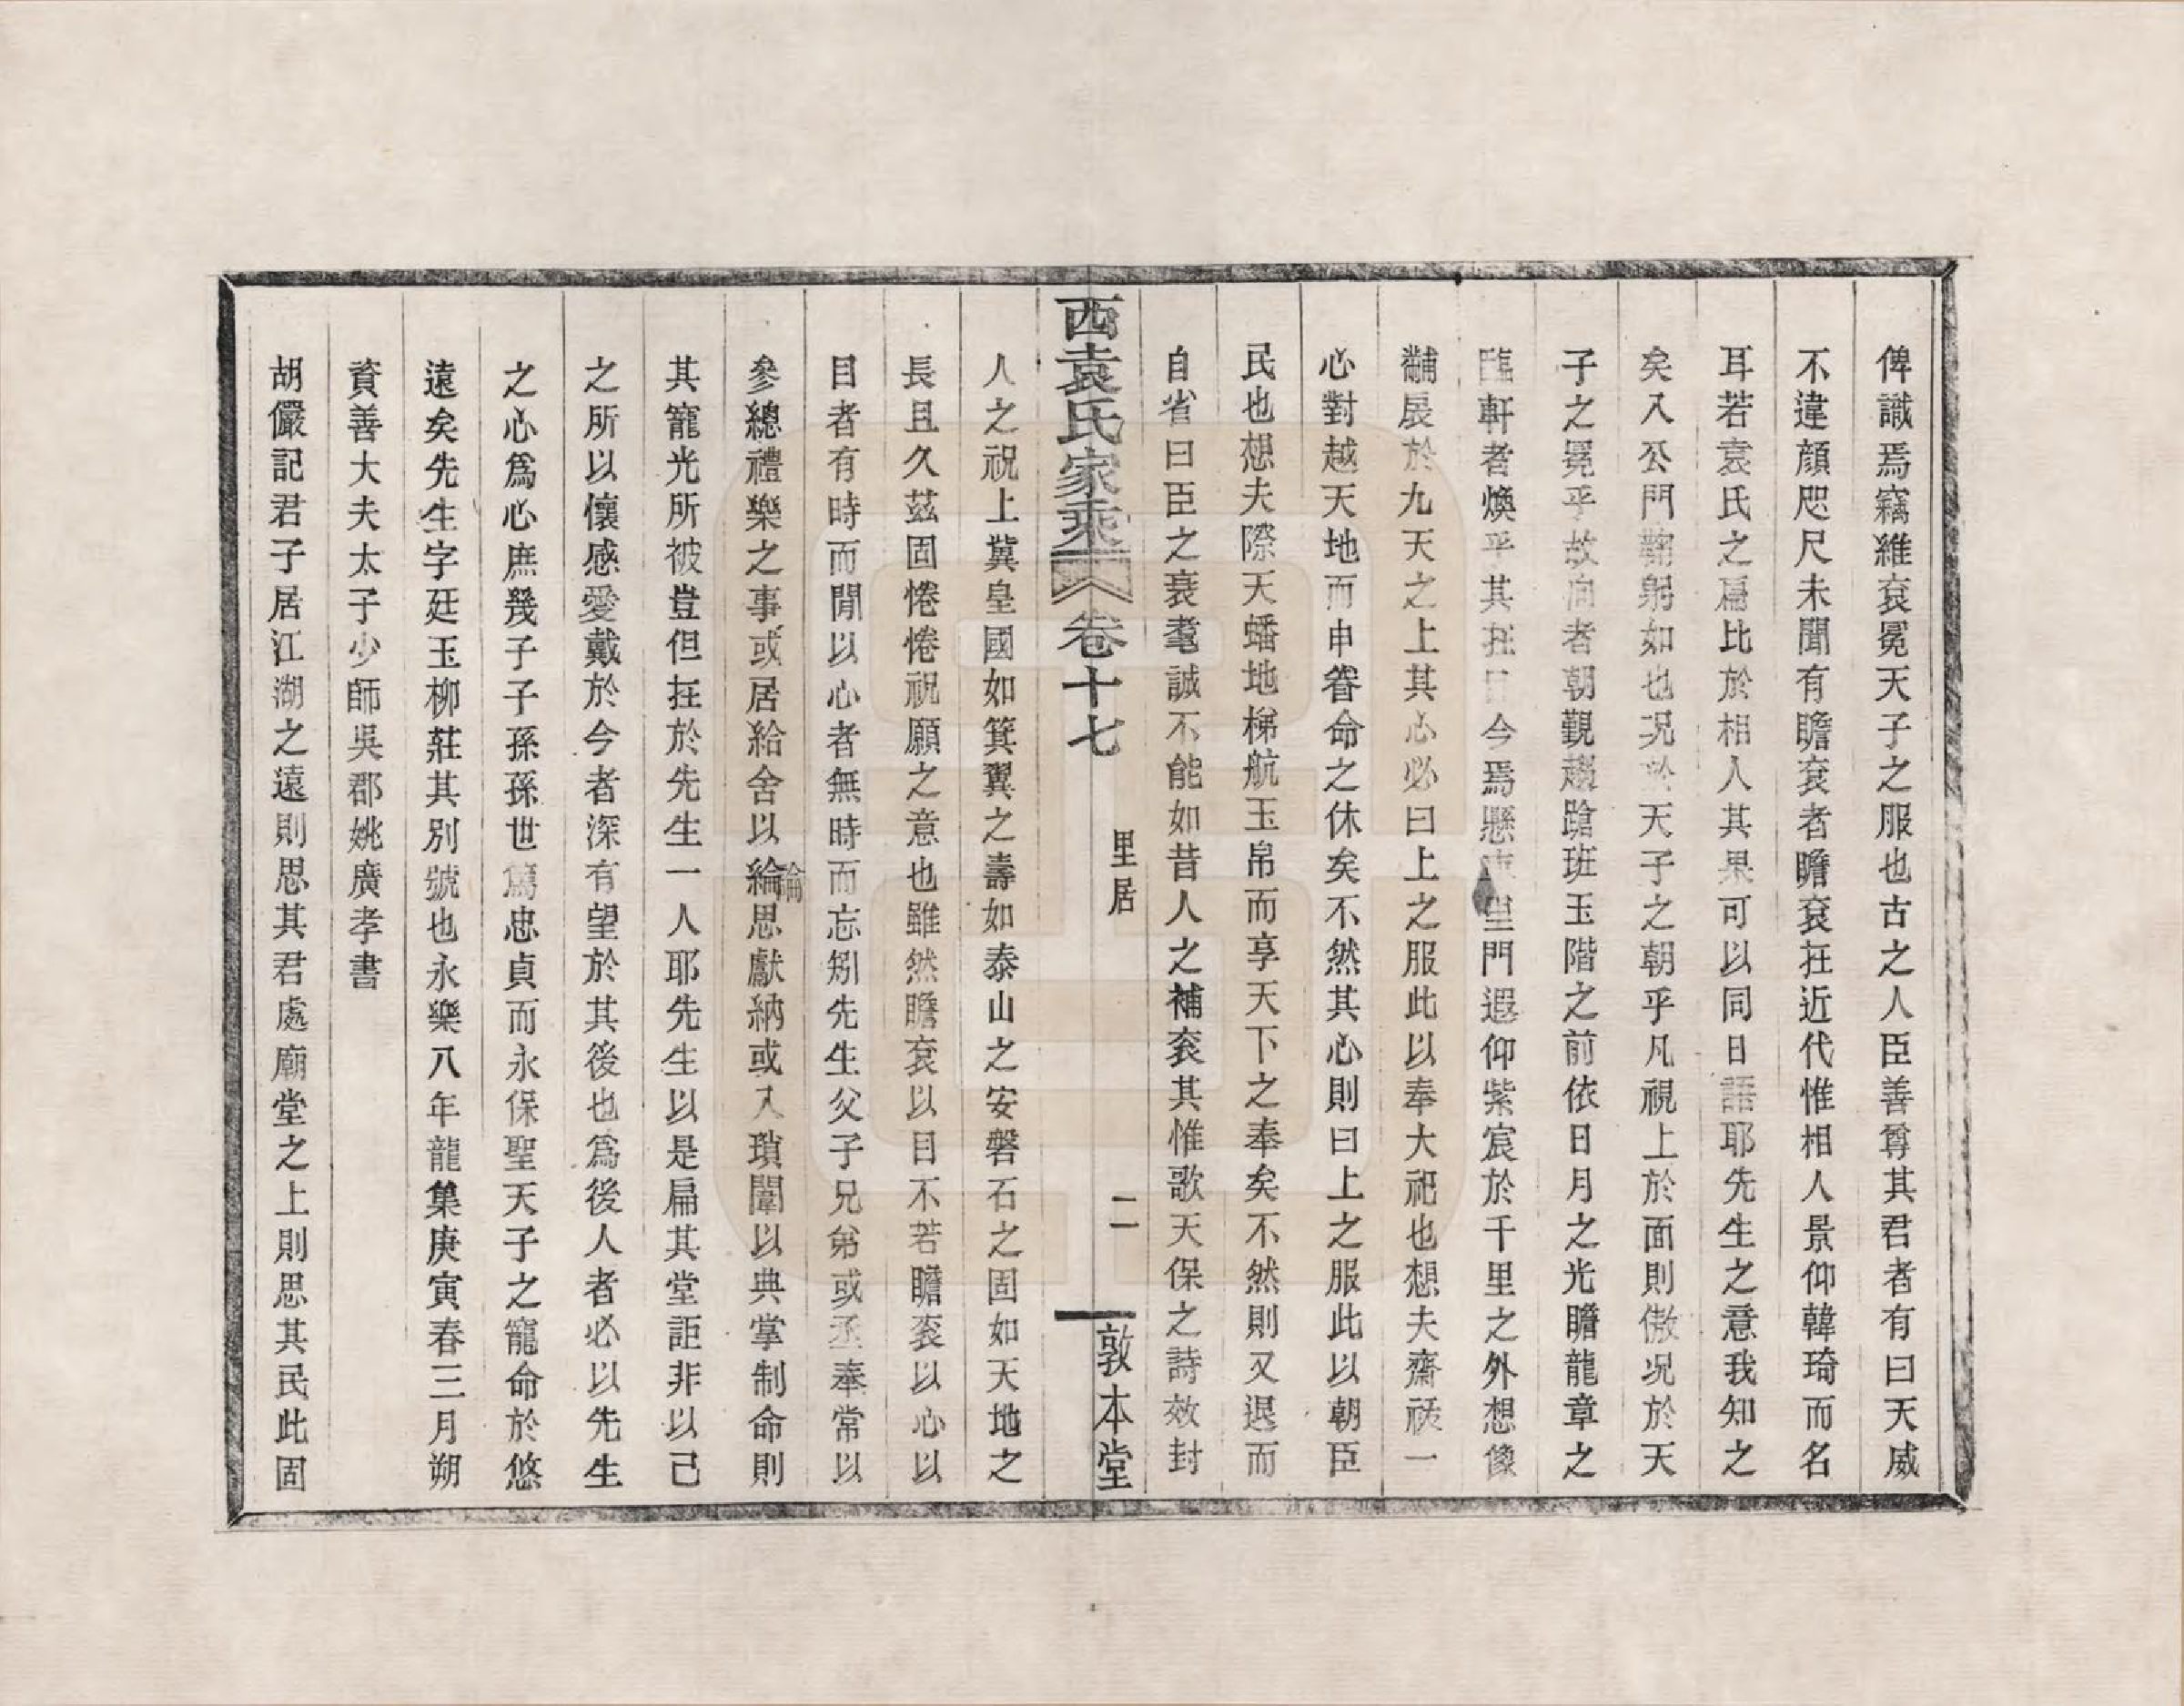 俾識焉竊維袞冕天子之服也古之人臣善尊其君者有曰天威
不違顏咫尺未聞有瞻袞者瞻袞在近代惟相人景仰韓琦而名
耳若袁氏之扁比於相人其果可以同日語耶先生之意我知之
矣入公門鞠躬如也況於天子之朝乎凡視上於面則傲況於天
子之冕乎故向者朝覲趨蹌班玉階之前依日月之光瞻龍章之
臨軒者煥乎其在目今焉懸車里門遐仰紫宸於千里之外想像
黼扆於九天之上其心必曰上之服此以奉大祀也想夫齋祓一
心對越天地而申眷命之休矣不然其心則曰上之服此以朝臣
民也想夫際天蟠地梯航玉帛而享天下之奉矣不然則又退而
自省曰臣之衰耄誠不能如昔人之補袞其惟歌天保之詩效封
西袁氏家乘 卷十七 里居 二 敦本堂
人之祝上冀皇國如箕翼之壽如泰山之安磐石之固如天地之
長且久茲固惓惓祝願之意也雖然瞻袞以目不若瞻袞以心以
目者有時而閒以心者無時而忘矧先生父子兄弟或丞奉常以
參總禮樂之事或居給舍以綸論思獻納或入瑣闈以典掌制命則
其寵光所被豈但在於先生一人耶先生以是扁其堂詎非以己
之所以懷感愛戴於今者深有望於其後也為後人者必以先生
之心爲心庶幾子子孫孫世篤忠貞而永保聖天子之寵命於悠
遠矣先生字廷玉柳莊其別號也永樂八年龍集庚寅春三月朔
資善大夫太子少師吳郡姚廣孝書
胡儼記君子居江湖之遠則思其君處廟堂之上則思其民此固